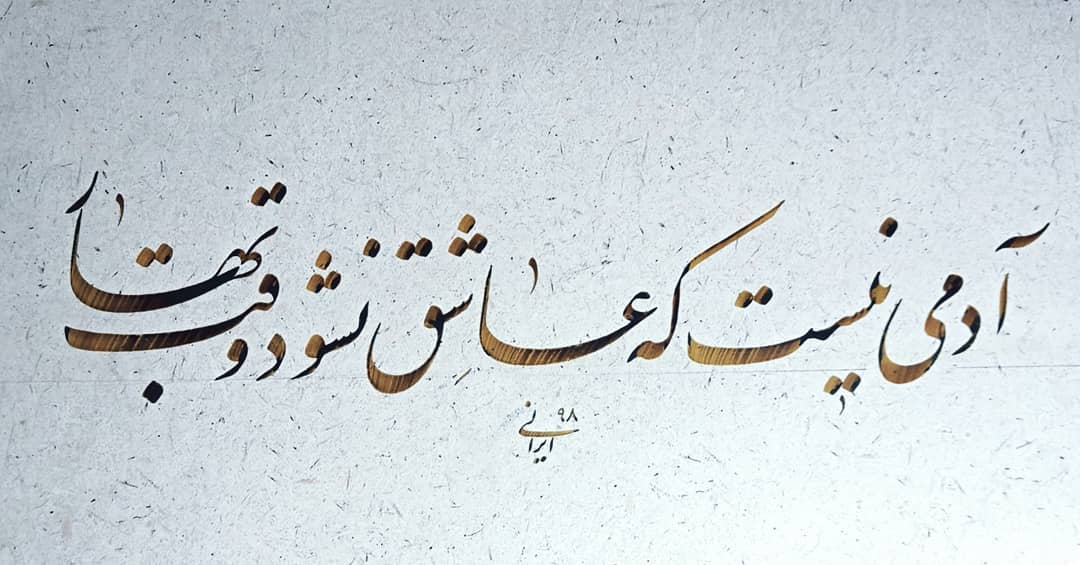 آدمی نیست که عاشق نشود وقت بهار
۹۸
ایرانی